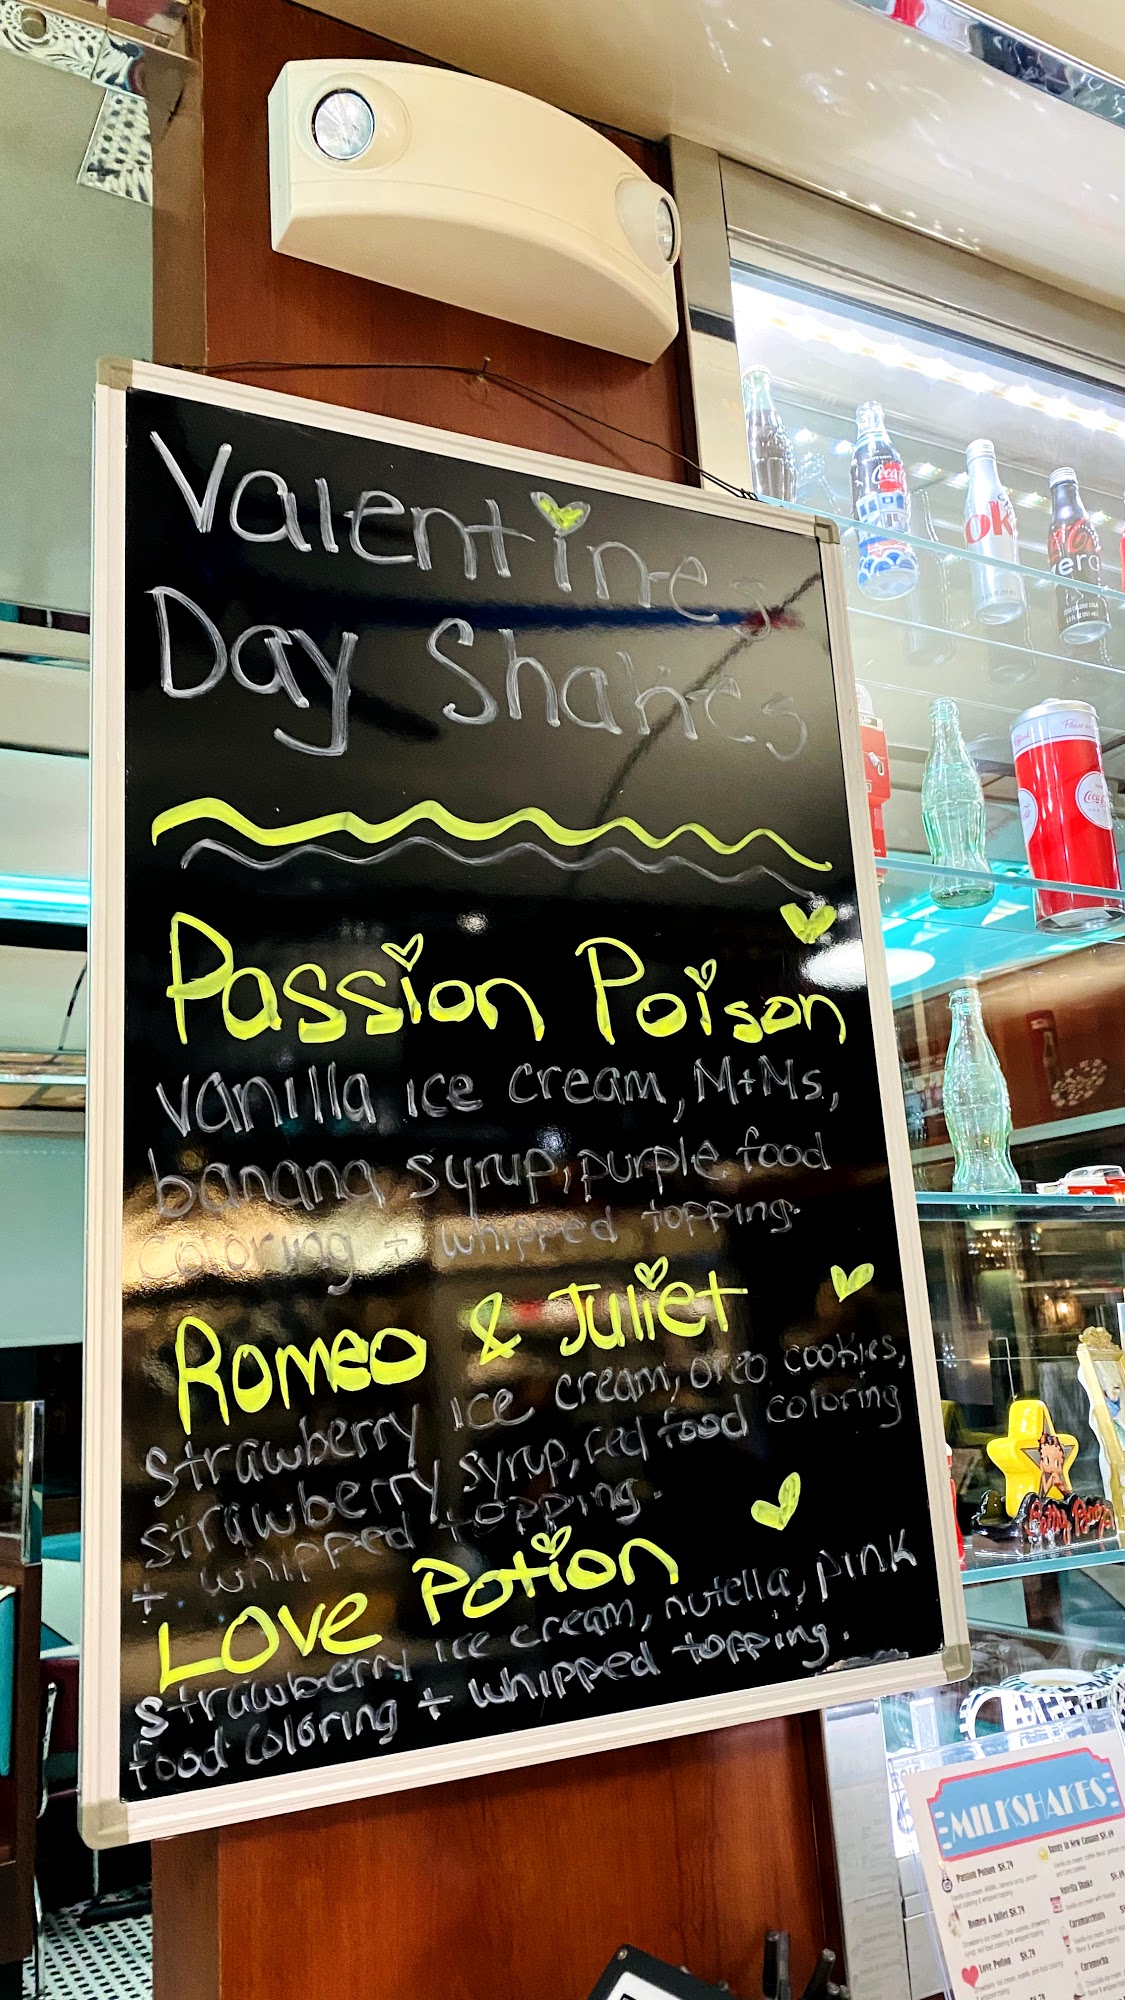 Valentines
Day Shakes
Passion Poison
vanilla ice cream, M+Ms,
banana syrup, purple food
coloring + whipped topping.
Romeo & Juliet
strawberry ice cream, oreo cookies,
strawberry syrup, red food coloring
+ whipped topping.
Love Potion
strawberry ice cream, nutella, pink
food coloring + whipped topping.
Coca-Cola
Coke
zero
Coca-Cola
Betty Boop
MILKSHAKES
Passion Poison $8.79
Romeo & Juliet $8.79
Love Potion $8.79
Sunny in New Canaan $8.49
Vanilla Shake
Caramocha